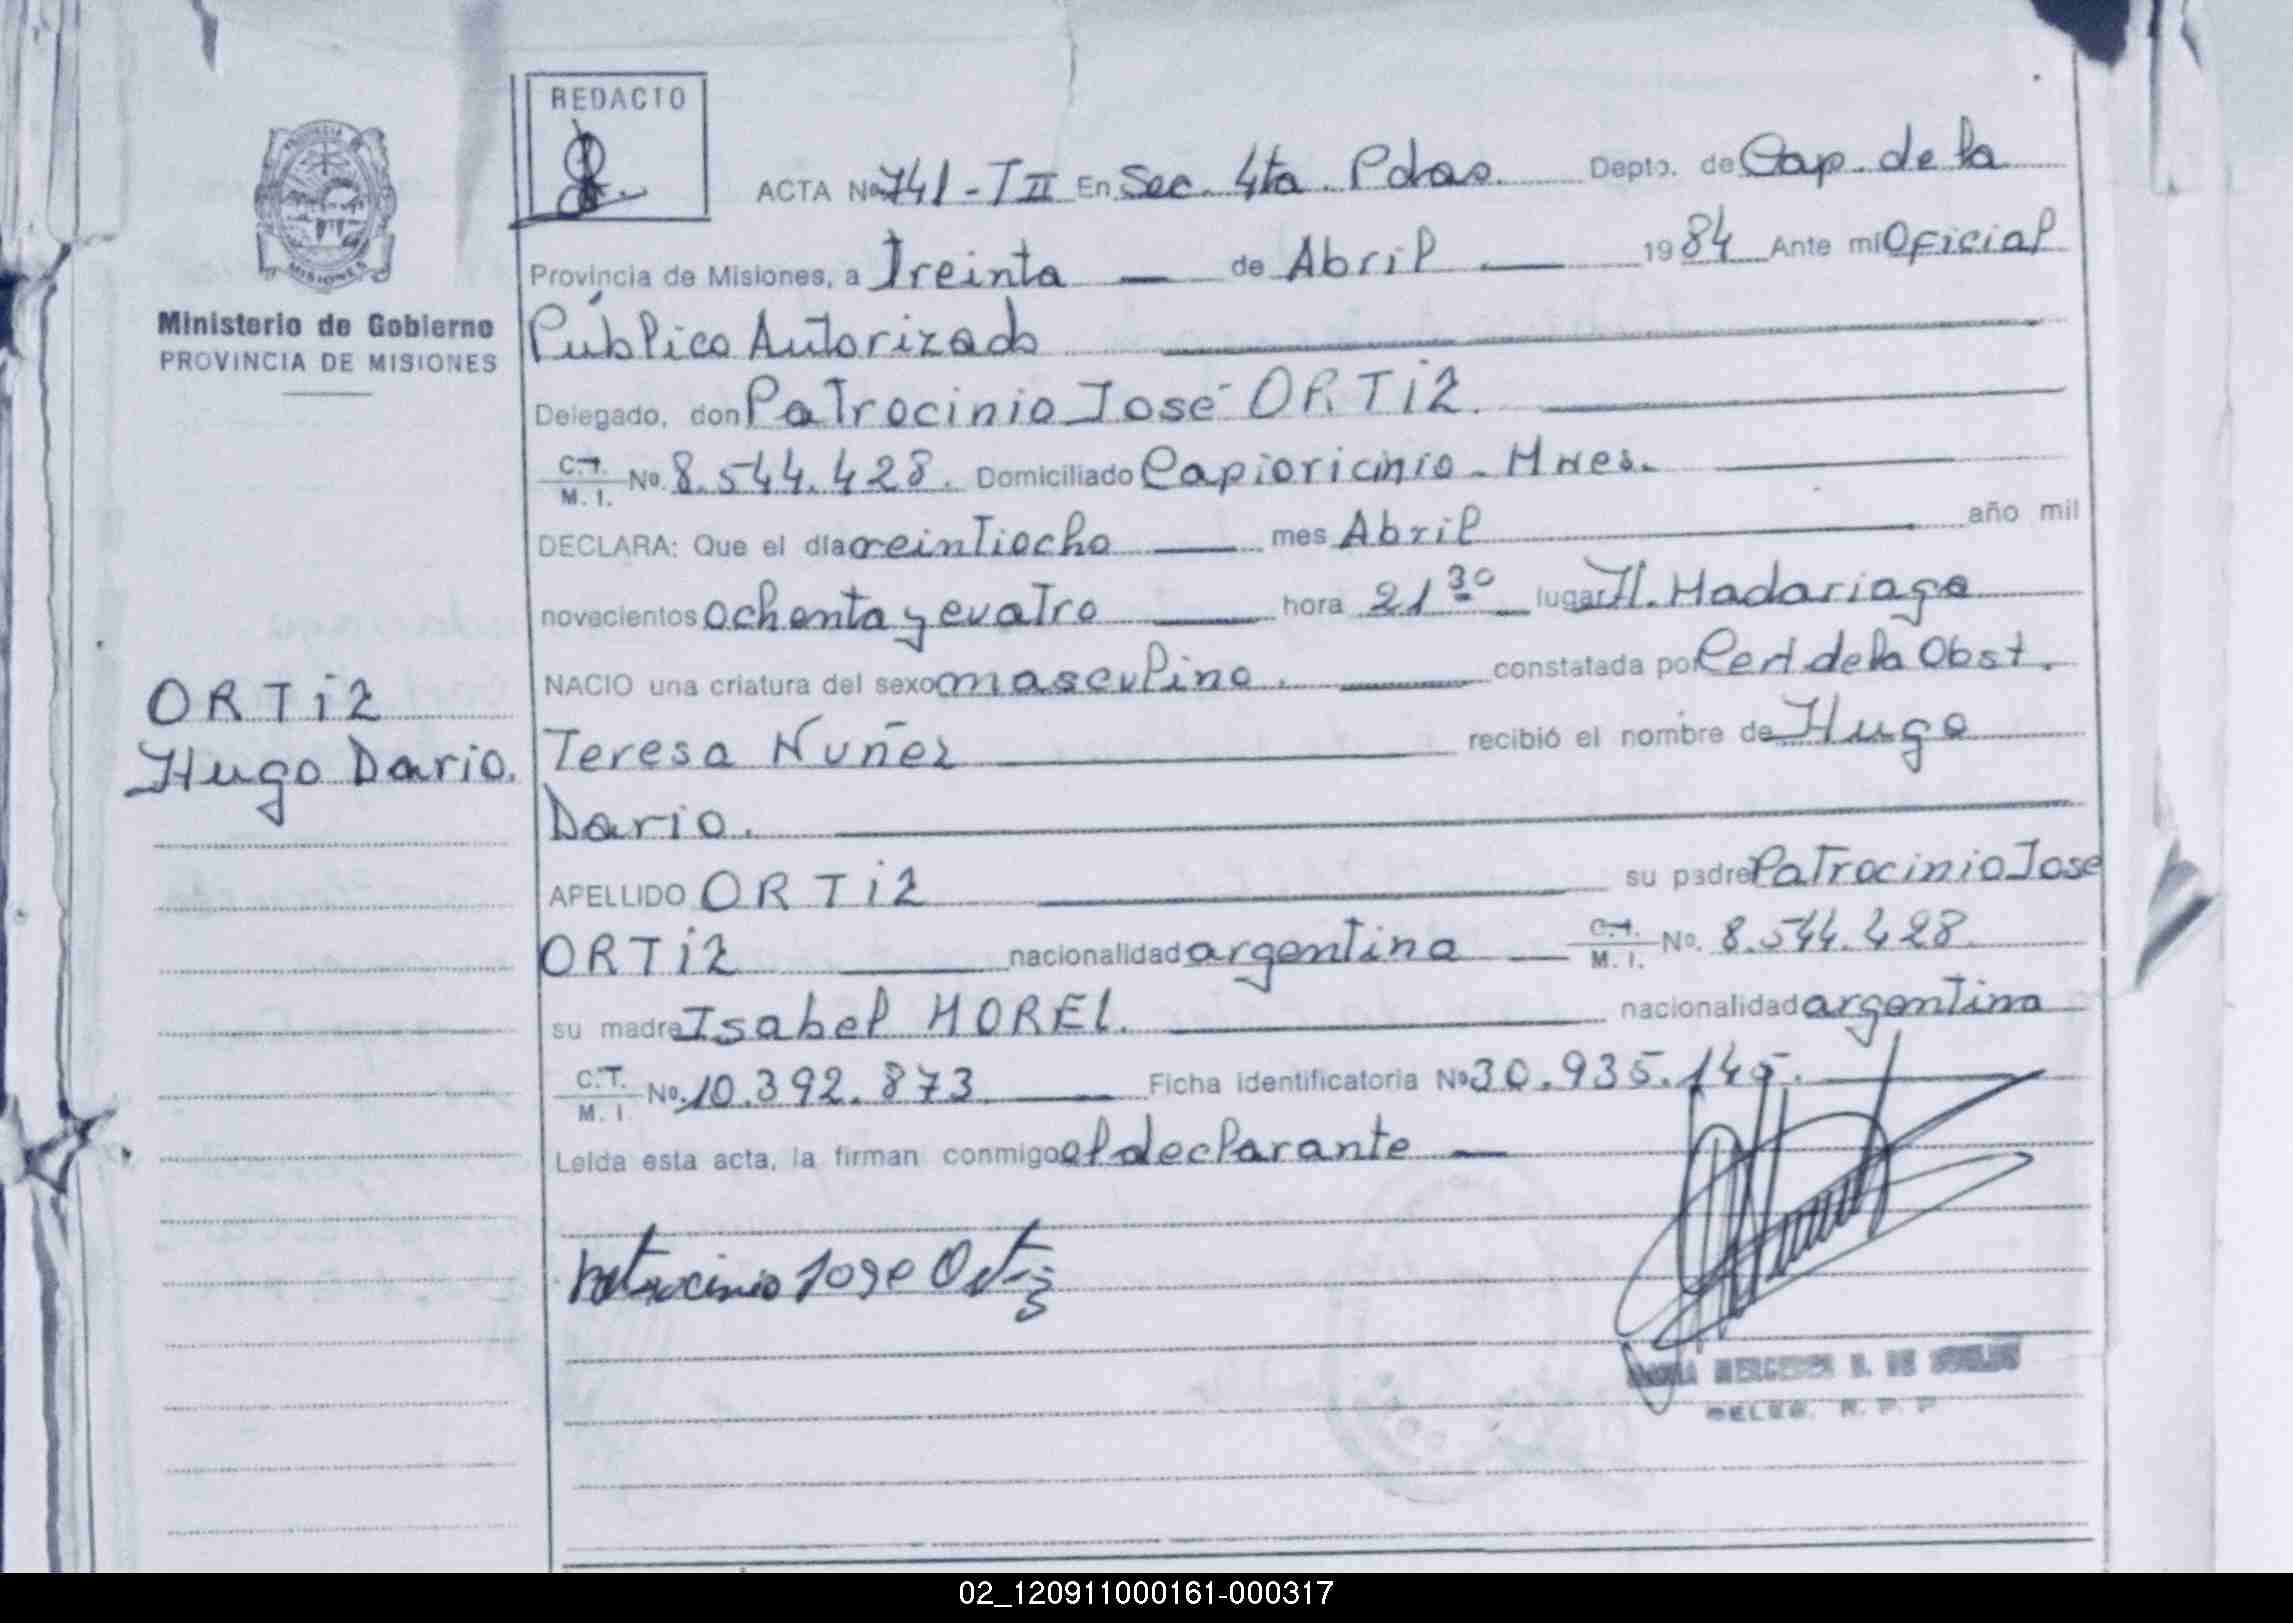 REDACTO
ACTA No 741 - T II En Sec. 4ta. Pdas. Depto. de Cap. de la
Provincia de Misiones, a Treinta — de Abril — 1984 Ante mí Oficial
Público Autorizado
Delegado, don Patrocinio José ORTiZ.
C.I. M. I. No. 8.544.428. Domiciliado Mnes.
DECLARA: Que el día veintiocho — mes Abril año mil
novecientos ochenta y cuatro — hora 21 30 lugar H. Madariaga
NACIO una criatura del sexo masculino. constatada por Cert de la Obst.
Teresa Nuñez recibió el nombre de Hugo
Dario.
APELLIDO ORTiZ su padre Patrocinio Jose
ORTiZ nacionalidad argentina — C.I. M. I. No. 8.544.428
su madre Isabel MOREL. nacionalidad argentina
C.T. M. I. No. 10.392.873 Ficha identificatoria No 30.935.145.
Leída esta acta, la firman conmigo el declarante —
Patrocinio Jose Ortiz
MERCEDES DE
R. P. P
PROVINCIA
MISIONES
Ministerio de Gobierno
PROVINCIA DE MISIONES
ORTiZ
Hugo Dario.
02_120911000161-000317